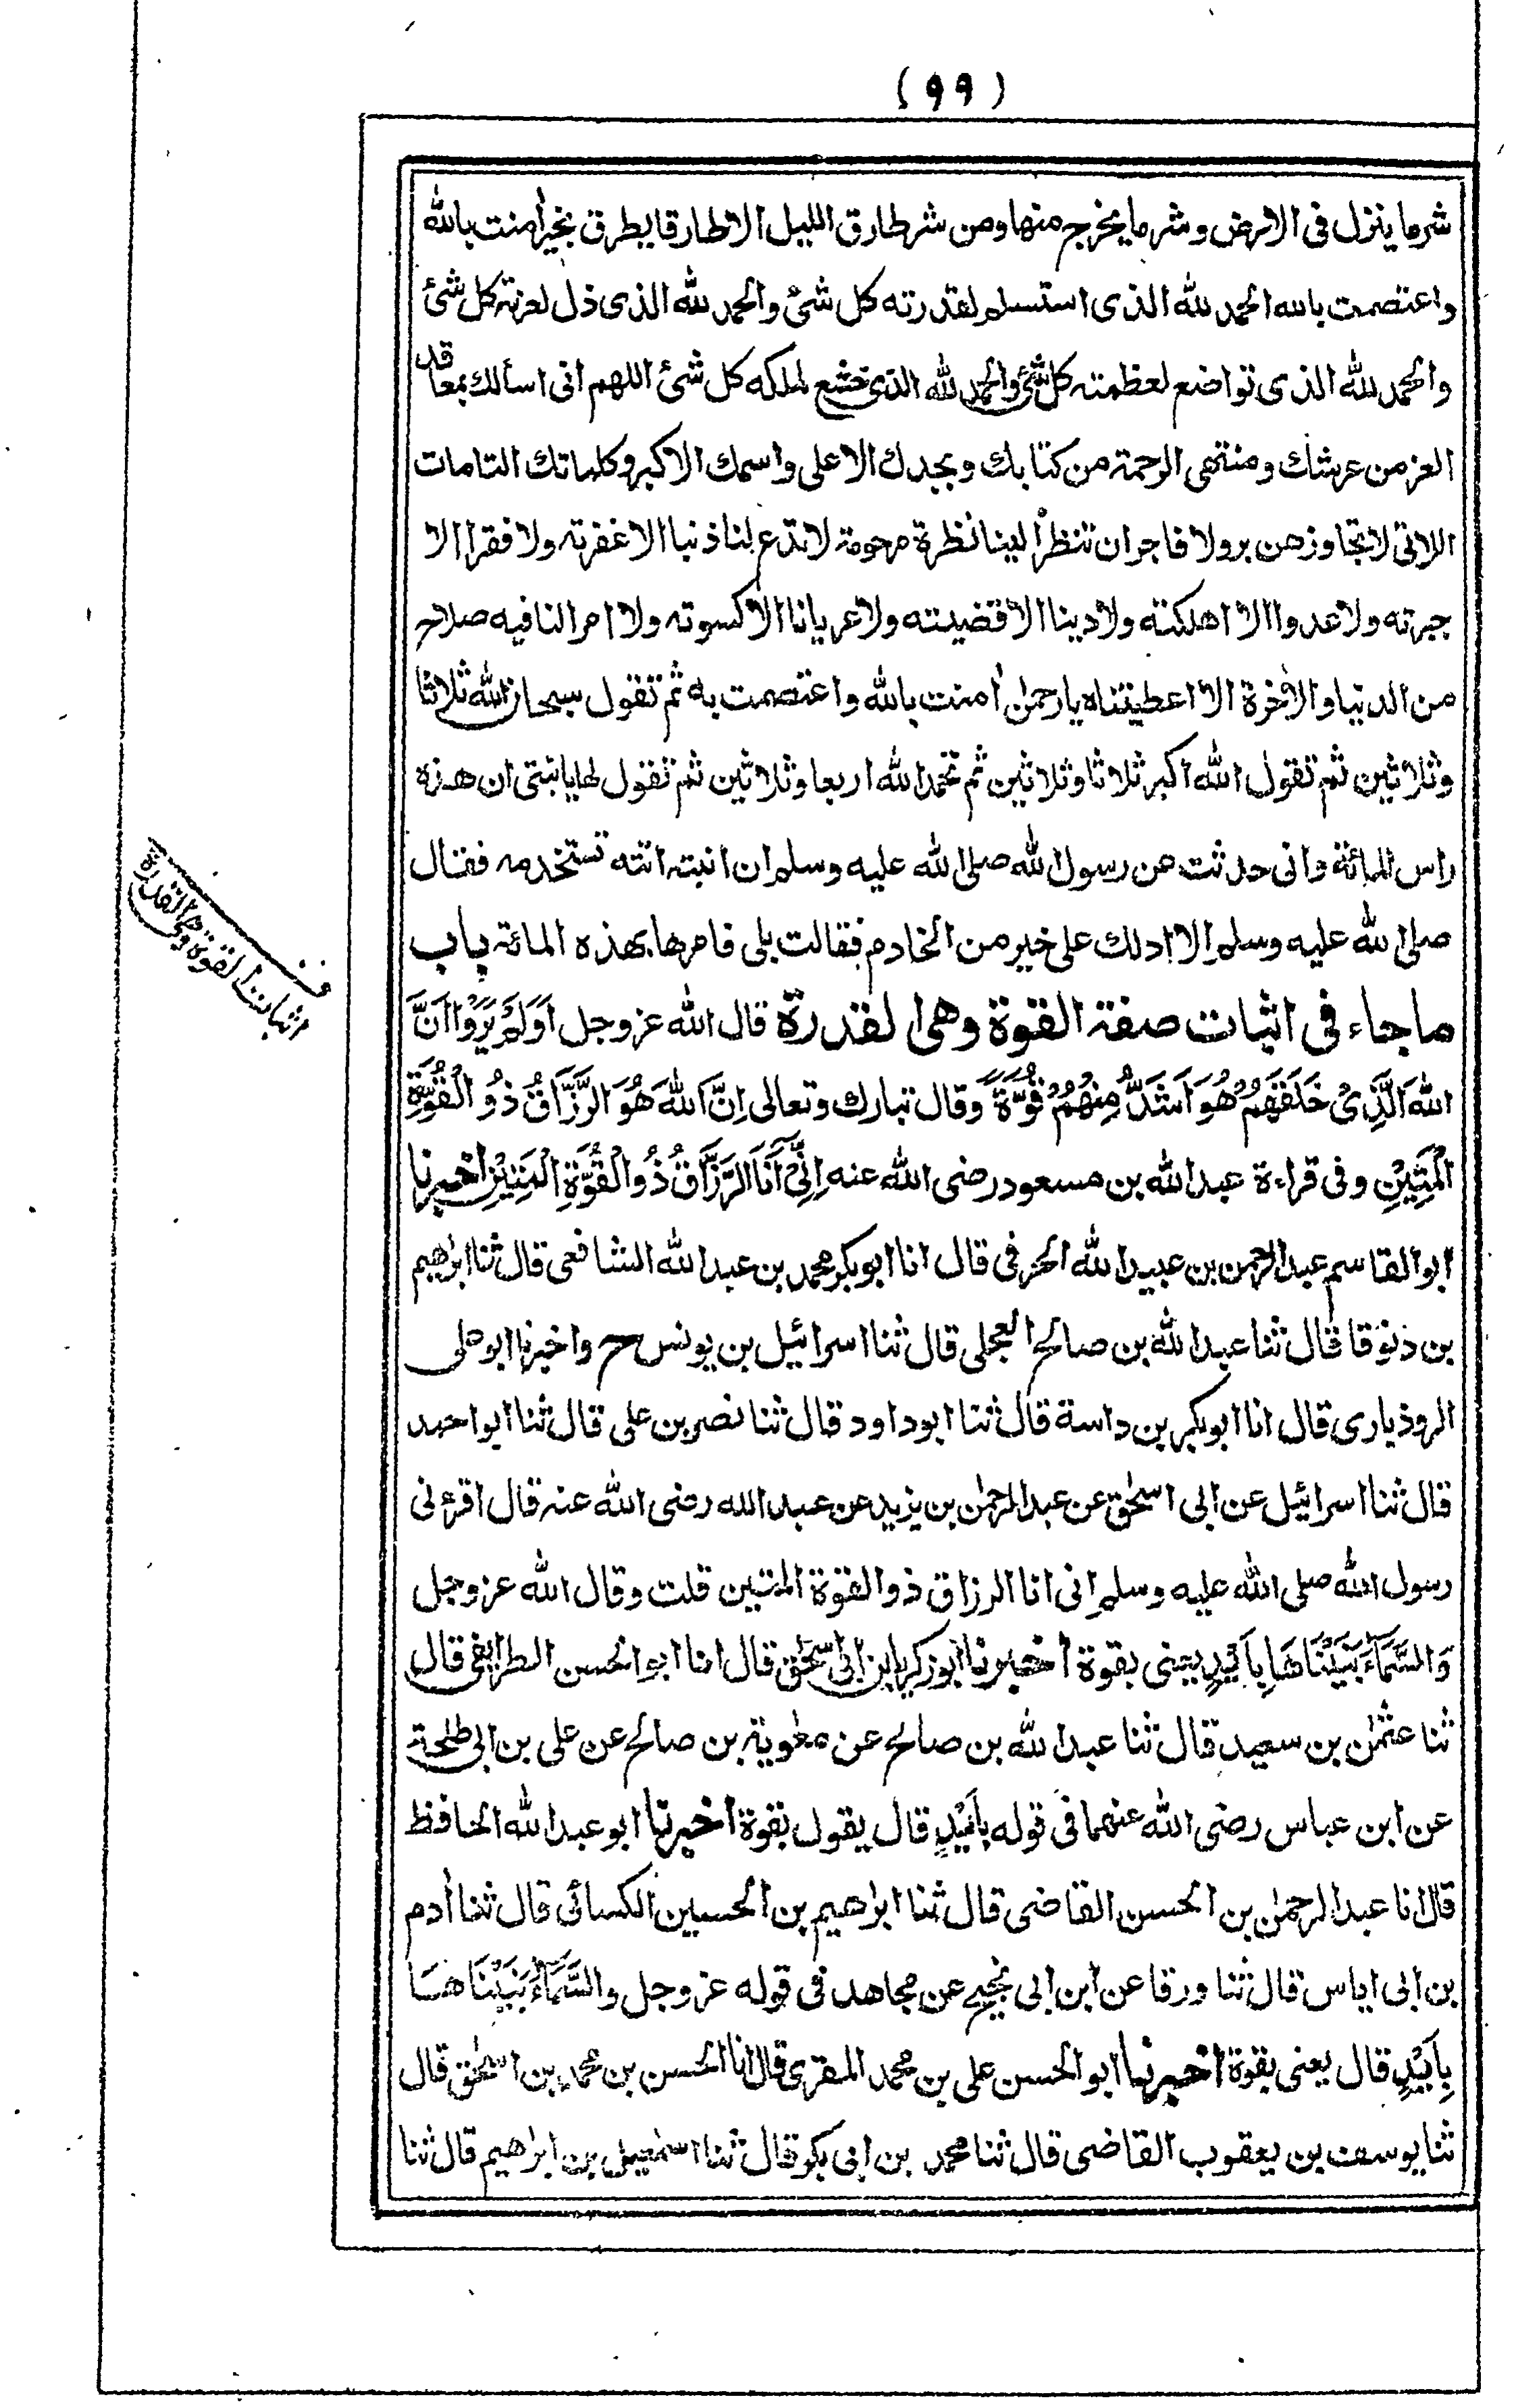 (٩٩)
شر ما ينزل فى الارض وشر ما يخرج منها ومن شر طارق الليل الا طارقا يطرق بخير اٰمنت بالله
واعتصمت بالله الحمد لله الذى استسلم لقدرته كل شئ والحمد لله الذى ذل لعزته كل شئ
والحمد لله الذى تواضع لعظمته كل شئ والحمد لله الذى خشع لملكه كل شئ اللهم انى اسألك بمعاقد
العز من عرشك ومنتهى الرحمة من كتابك وبجدك الاعلى واسمك الاكبر وكلماتك التامات
اللاتى لا يتجاوزهن بر ولا فاجر ان تنظر الينا نظرة مرحومة لا تدع لنا ذنبا الا غفرته ولا فقرا الا
جبرته ولا عدوا الا اهلكته ولا دينا الا قضيته ولا عريانا الا كسوته ولا امرا لنا فيه صلاح
من الدنيا والاٰخرة الا اعطيتناه يا رحمٰن اٰمنت بالله واعتصمت به ثم تقول سبحان الله ثلاثا
وثلاثين ثم تقول الله اكبر ثلاثا وثلاثين ثم تحمد الله اربعا وثلاثين ثم تقول لها يا بنتى ان هذه
راس المائة وانى حدثت عن رسول الله صلى الله عليه وسلم ان ابنته اتته تستخدمه فقال
صلى الله عليه وسلم الا ادلك على خير من الخادم فقالت بلى فامرها بهذه المائة باب
ما جاء فى اثبات صفة القوة وهى القدرة قال الله عز وجل اَوَلَمْ يَرَوْا اَنَّ
اللهَ الَّذِىْ خَلَقَهُمْ هُوَ اَشَدُّ مِنْهُمْ قُوَّةً وقال تبارك وتعالى اِنَّ اللهَ هُوَ الرَّزَّاقُ ذُو الْقُوَّةِ
الْمَتِيْنِ وفى قراءة عبد الله بن مسعود رضى الله عنه اِنِّىْ اَنَا الرَّزَّاقُ ذُو الْقُوَّةِ الْمَتِيْنِ اخبرنا
ابو القاسم عبد الرحمٰن بن عبيد الله الحرفى قال انا ابو بكر محمد بن عبد الله الشافعى قال ثنا ابرٰهيم
بن دنوقا قال ثنا عبد الله بن صالح العجلى قال ثنا اسرائيل بن يونس ح واخبرنا ابو على
الروذبارى قال انا ابو بكر بن داسة قال ثنا ابو داود قال ثنا نصر بن على قال ثنا ابو احمد
قال ثنا اسرائيل عن ابى اسحٰق عن عبد الرحمٰن بن يزيد عن عبد الله رضى الله عنه قال اقرءنى
رسول الله صلى الله عليه وسلم انى انا الرزاق ذو القوة المتين قلت وقال الله عز وجل
وَالسَّمَاءَ بَنَيْنَاهَا بِاَيْيدٍ يعنى بقوة اخبرنا ابو زكريا بن ابى اسحٰق قال انا ابو الحسن الطرائفى قال
ثنا عثمٰن بن سعيد قال ثنا عبد الله بن صالح عن معٰوية بن صالح عن على بن ابى طلحة
عن ابن عباس رضى الله عنهما فى قوله بِاَيْيدٍ قال يقول بقوة اخبرنا ابو عبد الله الحافظ
قال انا عبد الرحمٰن بن الحسن القاضى قال ثنا ابرٰهيم بن الحسين الكسائى قال ثنا اٰدم
بن ابى اياس قال ثنا ورقا عن ابن ابى نجيح عن مجاهد فى قوله عز وجل والسَّمَاءَ بَنَيْنَاهَا
بِاَيْيدٍ قال يعنى بقوة اخبرنا ابو الحسن على بن محمد المقرى قال انا الحسن بن محمد بن اسحٰق قال
ثنا يوسف بن يعقوب القاضى قال ثنا محمد بن ابى بكر قال ثنا اسمٰعيل بن ابرٰهيم قال ثنا
اثبات القوة وهى القدرة